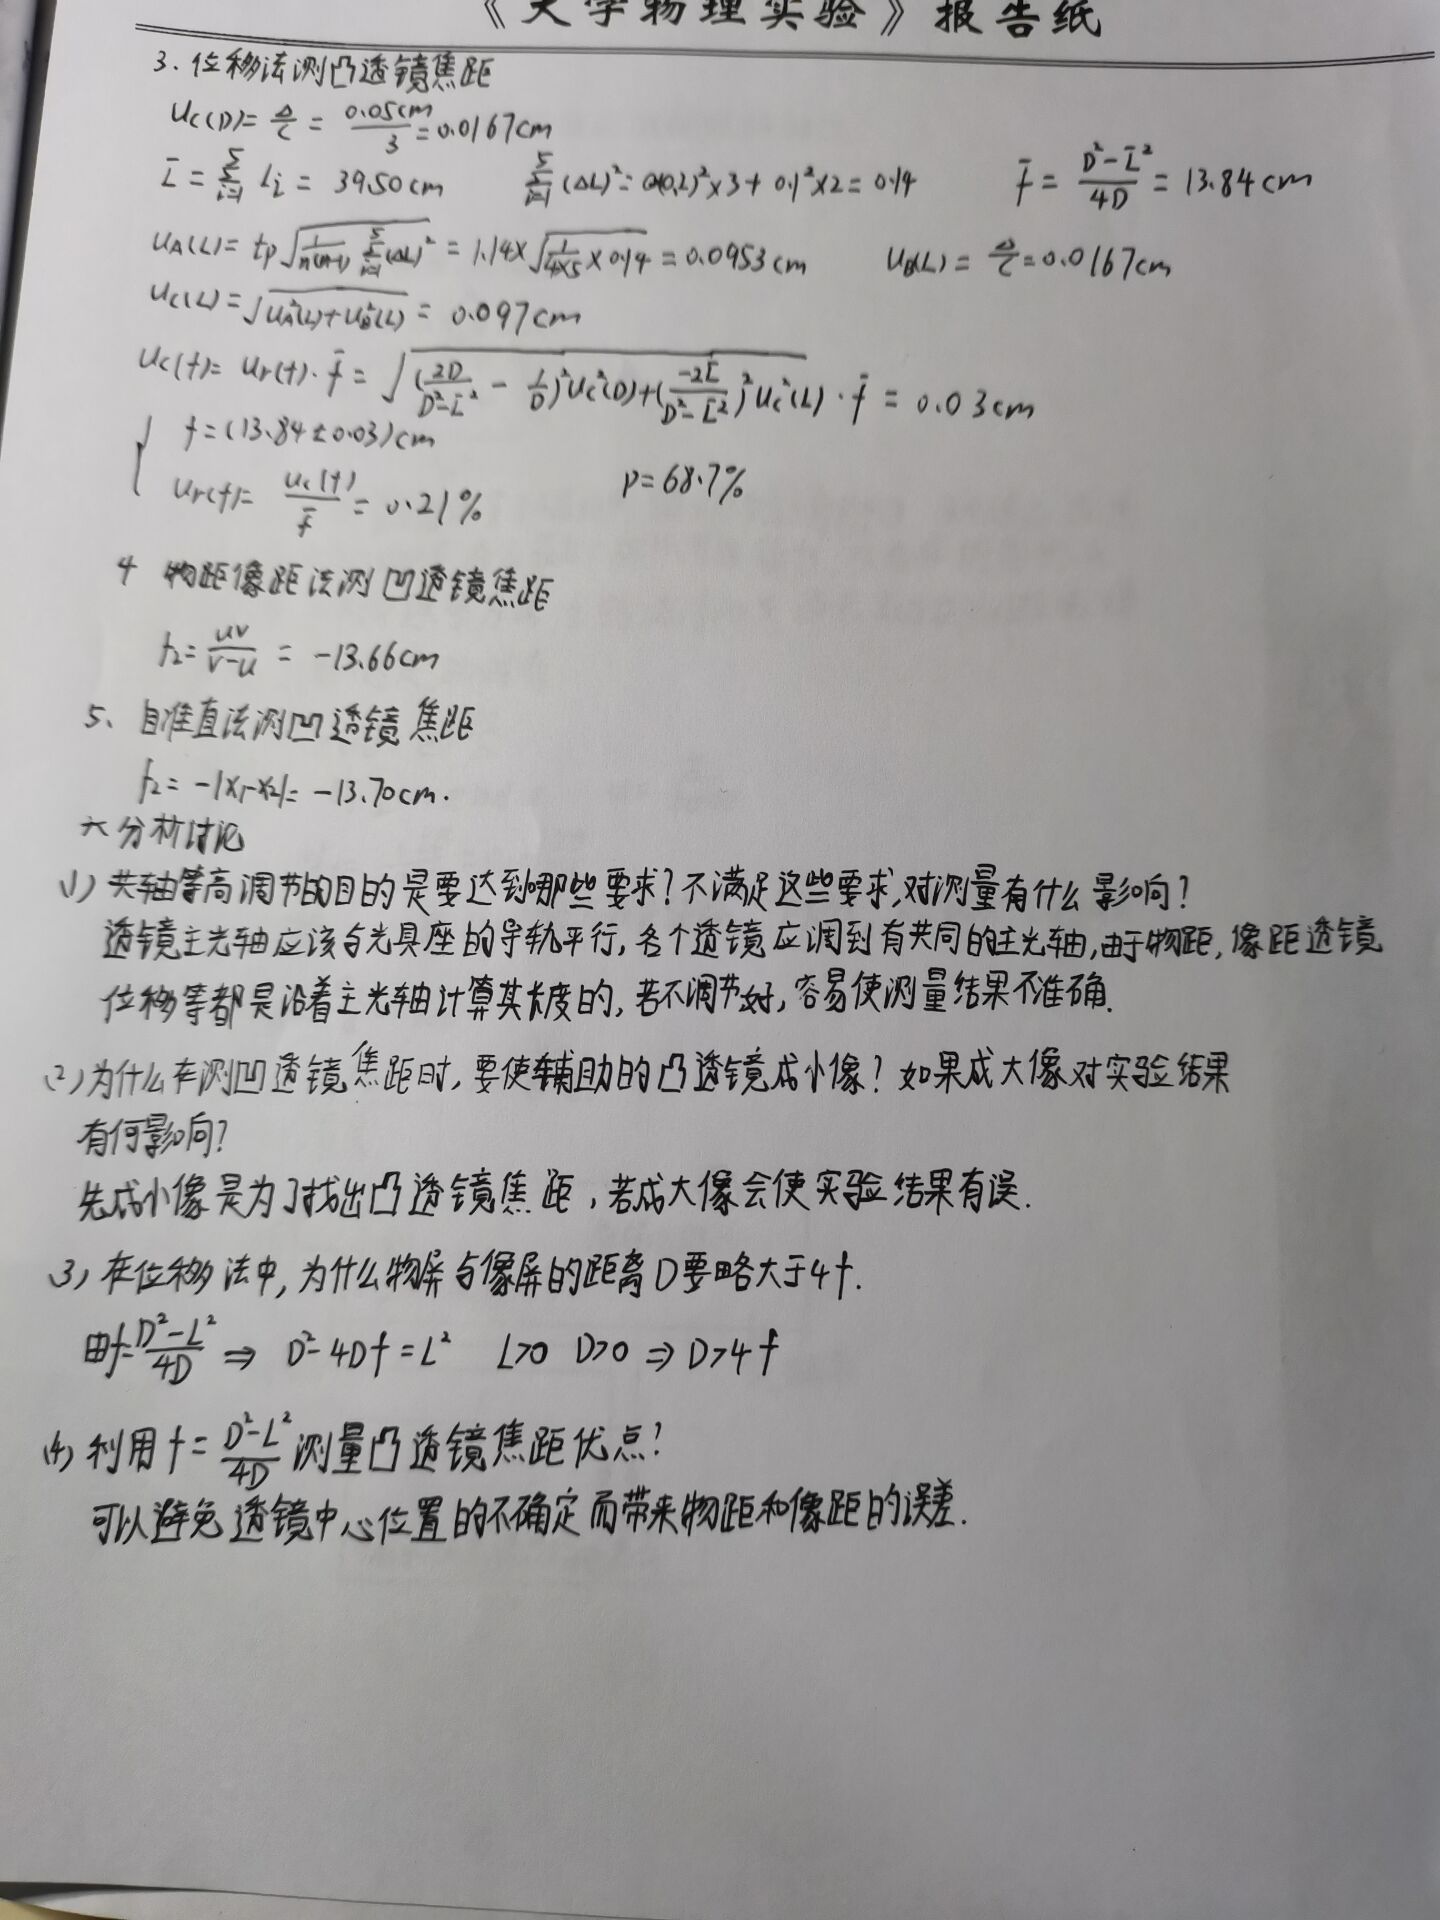 《大学物理实验》报告纸
3. 位移法测凸透镜焦距
Uc(D)= Δ/C = 0.05cm/3 = 0.0167cm
L̄ = Σ(i=1→5) Li = 39.50cm  Σ(i=1→5) (ΔL)² = (0.2)²×3 + 0.1²×2 = 0.14  f̄ = (D²-L̄²)/4D = 13.84cm
UA(L)= tp√(1/n(n-1) Σ(i=1→5)(ΔL)²) = 1.14×√(1/(4×5) ×0.14) = 0.0953cm  UB(L) = Δ/C = 0.0167cm
Uc(L) = √(UA²(L)+UB²(L)) = 0.097cm
Uc(f)= Ur(f)·f̄ = √((2D/(D²-L̄²) - 1/D)²Uc²(D)+(-2L̄/(D²-L̄²))²Uc²(L)) · f̄ = 0.03cm
f=(13.84±0.03)cm
Ur(f)= Uc(f)/f̄ = 0.21%  P=68.7%
4 物距像距法测凹透镜焦距
f2= uv/(v-u) = -13.66cm
5、自准直法测凹透镜焦距
f2= -|x1-x2|= -13.70cm.
六 分析讨论
(1) 共轴等高调节的目的是要达到哪些要求?不满足这些要求,对测量有什么影响?
透镜主光轴应该与光具座的导轨平行,各个透镜应调到有共同的主光轴,由于物距,像距透镜
位移等都是沿着主光轴计算其长度的,若不调节好,容易使测量结果不准确.
(2) 为什么在测凹透镜焦距时,要使辅助的凸透镜成小像?如果成大像对实验结果
有何影响?
先成小像是为了找出凸透镜焦距,若成大像会使实验结果有误.
(3) 在位移法中,为什么物屏与像屏的距离D要略大于4f.
由f=(D²-L²)/4D ⇒ D²-4Df=L²  L>0 D>0 ⇒ D>4f
(4) 利用f=(D²-L²)/4D测量凸透镜焦距优点?
可以避免透镜中心位置的不确定而带来物距和像距的误差.